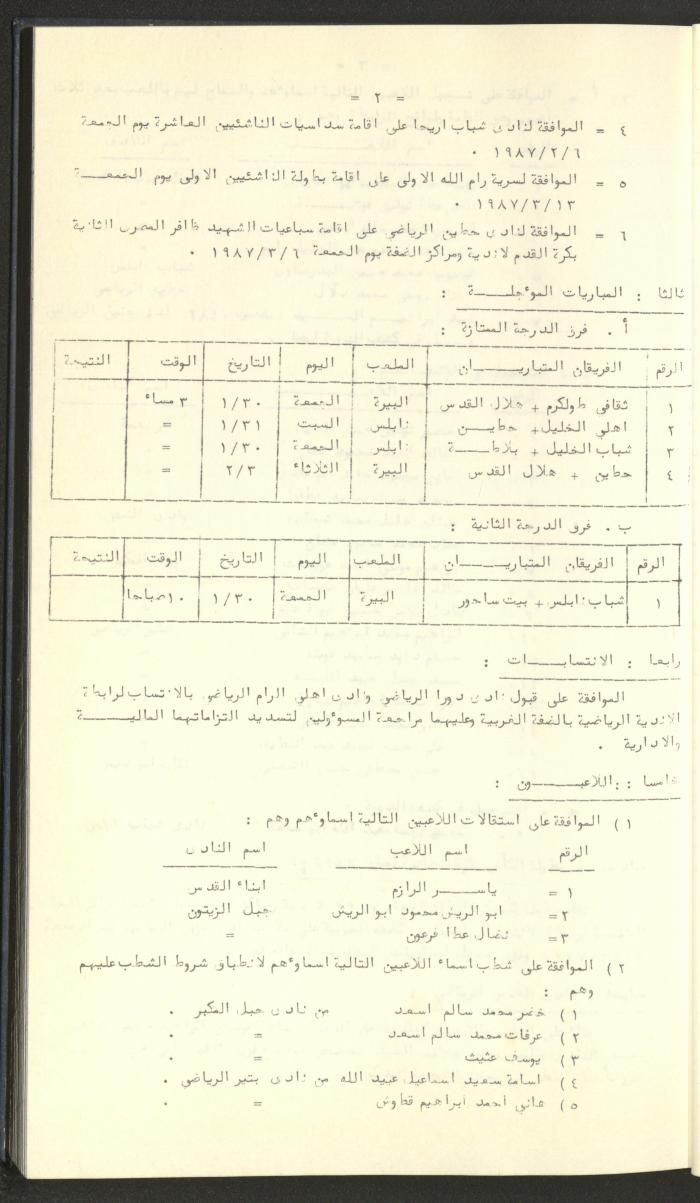 = ٢ =
٤ = الموافقة لنادى شباب اريحا على اقامة سداسيات الناشئيين العاشرة يوم الجمعة
١٩٨٧/٢/٦ .
٥ = الموافقة لسرية رام الله الاولى على اقامة بطولة الناشئيين الاولى يوم الجمعــــة
١٩٨٧/٣/١٣ .
٦ = الموافقة لنادى حطين الرياضي على اقامة سباعيات الشهيد ظافر المصرى الثانية
بكرة القدم لاندية ومراكز الضفة يوم الجمعة ١٩٨٧/٣/٦ .
ثالثا : المباريات المؤجلــــة :
أ . فرق الدرجة الممتازة :
الرقم الفريقان المتباريــــــان الملعب اليوم التاريخ الوقت النتيجة
١ ثقافي طولكرم + هلال القدس البيرة الجمعة ١/٣٠ ٣ مساء
٢ اهلي الخليل + حطيــــن نابلس السبت ١/٣١ =
٣ شباب الخليل + بلاطــــة نابلس الجمعة ١/٣٠ =
٤ حطين + هلال القدس البيرة الثلاثاء ٢/٣ =
ب . فرق الدرجة الثانية :
الرقم الفريقان المتباريــــــان الملعب اليوم التاريخ الوقت النتيجة
١ شباب نابلس + بيت ساحور البيرة الجمعة ١/٣٠ ١٠صباحا
رابعا : الانتسابــــات :
الموافقة على قبول نادى دورا الرياضي ونادى اهلي الرام الرياضي بالانتساب لرابطة
الاندية الرياضية بالضفة الغربية وعليهما مراجعة المسؤولين لتسديد التزاماتهما الماليــــة
والادارية .
خامسا : اللاعبـــــون :
١ ) الموافقة على استقالات اللاعبين التالية اسماؤهم وهم :
الرقم اسم اللاعب اسم النادى
١ = ياســــر الرازم ابناء القدس
٢= ابو الريش محمود ابو الريش جبل الزيتون
٣= نضال عطا فرعون =
٢ ) الموافقة على شطب اسماء اللاعبين التالية اسماؤهم لانطباق شروط الشطب عليهم
وهم :
١ ) خضر محمد سالم اسعد من نادى جبل المكبر .
٢ ) عرفات محمد سالم اسعد = .
٣ ) يوسف عثيث = .
٤ ) اسامة سعيد اسماعيل عبيد الله من نادى بتير الرياضي .
٥ ) هاني احمد ابراهيم قطوش = .